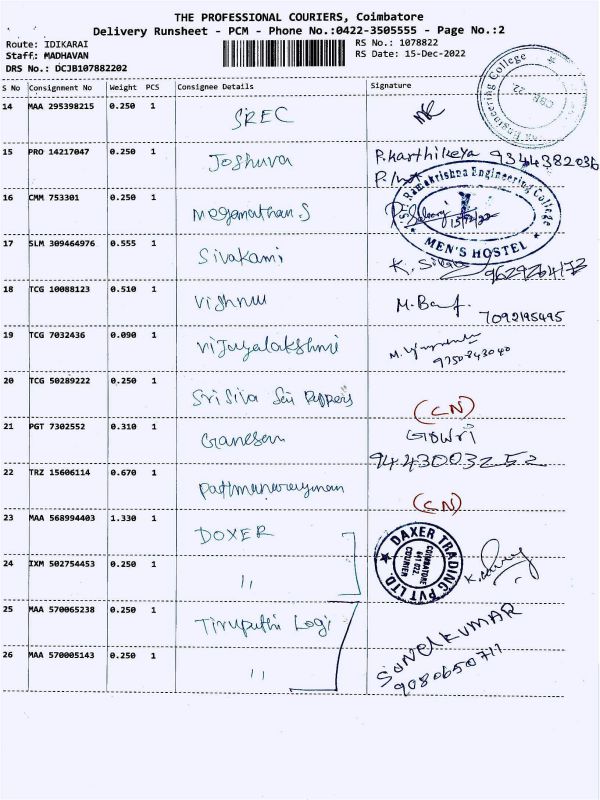 THE PROFESSIONAL COURIERS, Coimbatore
Delivery Runsheet - PCM - Phone No.:0422-3505555 - Page No.:2
Route: IDIKARAI
RS No.: 1078822
Staff: MADHAVAN
RS Date: 15-Dec-2022
DRS No.: DCJB107882202
S No Consignment No Weight PCS Consignee Details Signature
14 MAA 295398215 0.250 1 SREC
Engineering College
CBE 22
15 PRO 14217047 0.250 1 Joshuva P.Karthikeya 9344382036
16 CMM 753301 0.250 1 Meganathan.S
Ramakrishna Engineering College
15/12/22
MEN'S HOSTEL
17 SLM 309464976 0.555 1 Sivakami K. Siva 9629264173
18 TCG 10088123 0.510 1 Vishnu M.
7092195495
19 TCG 7032436 0.090 1 Vijayalakshmi M.
9750843040
20 TCG 50289222 0.250 1 Sri Siva Sai Peppers (CN)
21 PGT 7302552 0.310 1 Ganesan GOWRI
9443003252
22 TRZ 15606114 0.670 1 (CN)
23 MAA 568994403 1.330 1 DOXER
DAXER TRADING PVT LTD.
COIMBATORE
641 022.
COURIER
24 IXM 502754453 0.250 1 11 K.
25 MAA 570065238 0.250 1 Tiruputhi Logi SUNEL KUMAR
26 MAA 570005143 0.250 1 11 9080650711